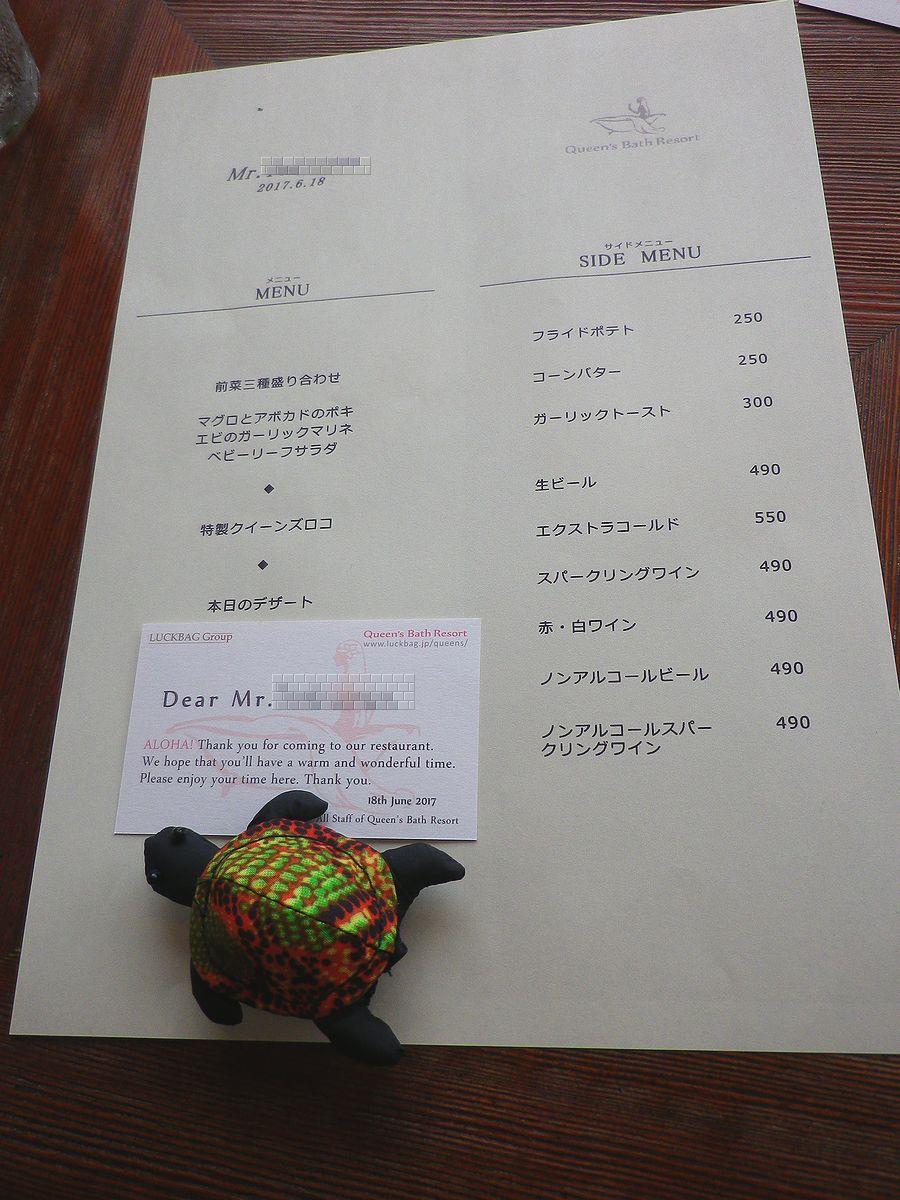 Mr.
2017.6.18
Queen's Bath Resort
メニュー
MENU
前菜三種盛り合わせ
マグロとアボカドのポキ
エビのガーリックマリネ
ベビーリーフサラダ
◆
特製クイーンズロコ
◆
本日のデザート
サイドメニュー
SIDE MENU
フライドポテト 250
コーンバター 250
ガーリックトースト 300
生ビール 490
エクストラコールド 550
スパークリングワイン 490
赤・白ワイン 490
ノンアルコールビール 490
ノンアルコールスパー 490
クリングワイン
LUCKBAG Group
Queen's Bath Resort
www.luckbag.jp/queens/
Dear Mr.
ALOHA! Thank you for coming to our restaurant.
We hope that you'll have a warm and wonderful time.
Please enjoy your time here. Thank you.
18th June 2017
All Staff of Queen's Bath Resort